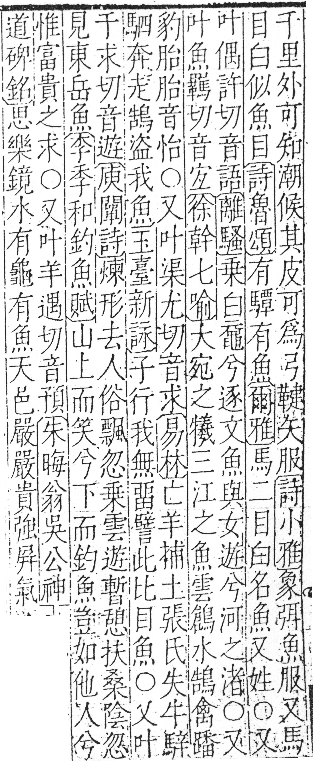 千里外可知潮候其皮可為弓鞬矢服詩小雅象弭魚服又馬
目白似魚目詩魯頌有驔有魚爾雅馬二目白名魚又姓○又
叶偶許切音語離騷乗白黿兮逐文魚與女遊兮河之渚○又
叶魚羈切音宜徐幹七喻大宛之犧三江之魚雲鶬水鵠禽蹯
豹胎胎音怡○又叶渠尤切音求易林亡羊補土張氏失牛騂
駟奔走鵠盜我魚玉臺新詠子行我無畱譬此比目魚○又叶
于求切音遊庾闡詩煉形去人俗飄忽乗雲遊暫憩扶桑陰忽
見東岳魚李季和釣魚賦山上而笑兮下而釣魚豈如他人兮
惟富貴之求○又叶羊遇切音預朱晦翁吳公神
道碑銘思樂鏡水有龜有魚天邑嚴嚴貴強屏氣